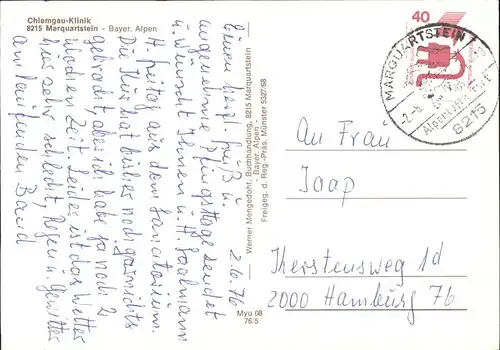 Chiemgau-Klinik
8215 Marquartstein - Bayer. Alpen
2.6.76
Einen herzl. Gruß u.
angenehme Pfingsttage sendet
u. wünscht Ihnen u. H.
H. Freitag aus dem Sanatorium.
Die Kur hat bisher noch gar nichts
gebracht, aber ich habe ja noch 2
Wochen Zeit. Leider ist das Wetter
hier sehr schlecht, Regen u. Gewitter
am laufenden Band
Werner Mengedoht, Buchhandlung, 8215 Marquartstein
- Bayer. Alpen -
Freigeg. d. Reg.-Präs. Münster 5327/68
Myu 08
76/5
40
MARQUARTSTEIN
-2.-6.
8215
An Frau
Jaap
Kerstensweg 1d
2000 Hamburg 76